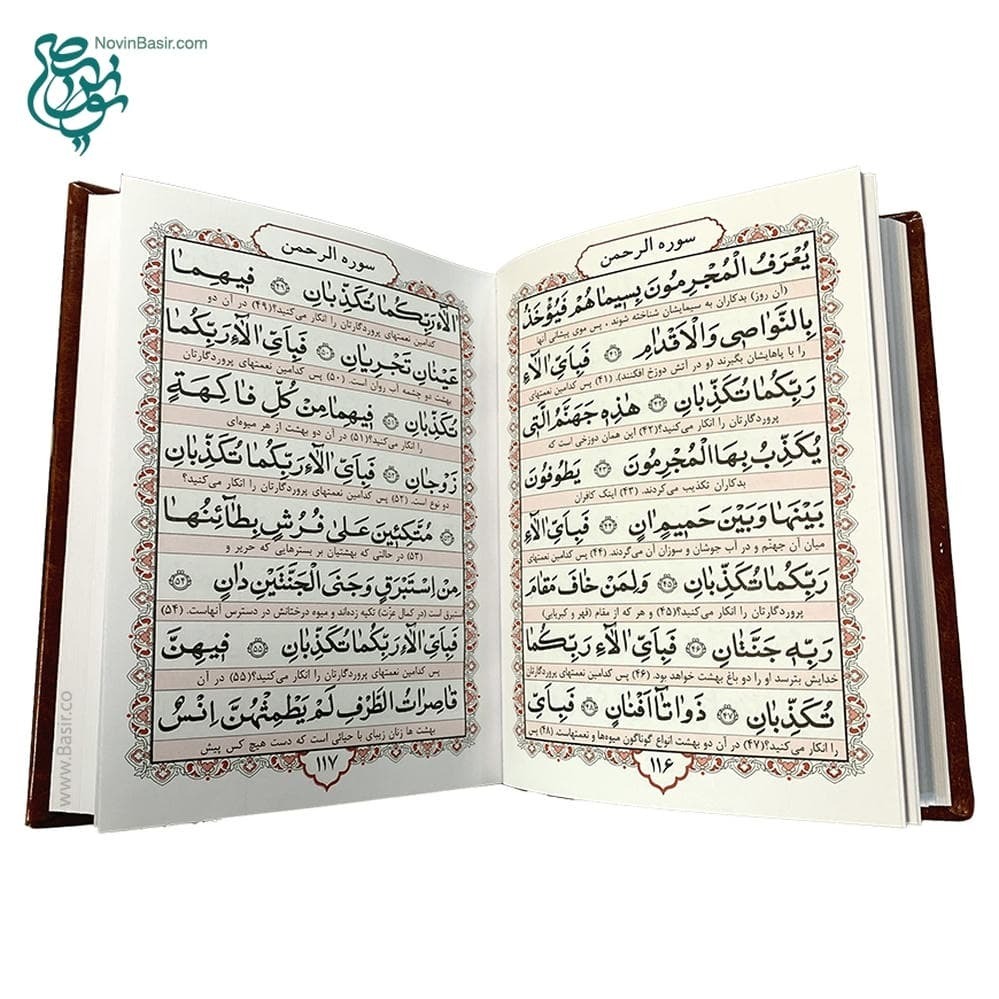 NovinBasir.com
نوین بصیر
سوره الرحمن
يُعْرَفُ الْمُجْرِمُونَ بِسِيمَاهُمْ فَيُؤْخَذُ
(آن روز) بدکاران به سیمایشان شناخته شوند ، پس موی پیشانی آنها
بِالنَّوَاصِي وَالْأَقْدَامِ ﴿٤١﴾ فَبِأَيِّ الْآءِ
را با پاهایشان بگیرند (و در آتش دوزخ افکنند). (۴۱) پس کدامین نعمتهای
رَبِّكُمَا تُكَذِّبَانِ ﴿٤٢﴾ هٰذِهِ جَهَنَّمُ الَّتِي
پروردگارتان را انکار می‌کنید؟(۴۲) این همان دوزخی است که
يُكَذِّبُ بِهَا الْمُجْرِمُونَ ﴿٤٣﴾ يَطُوفُونَ
بدکاران تکذیب می‌کردند. (۴۳) اینک کافران
بَيْنَهَا وَبَيْنَ حَمِيمٍ اٰنٍ ﴿٤٤﴾ فَبِأَيِّ الْآءِ
میان آن جهنّم و در آب جوشان و سوزان آن می‌گردند. (۴۴) پس کدامین نعمتهای
رَبِّكُمَا تُكَذِّبَانِ ﴿٤٥﴾ وَلِمَنْ خَافَ مَقَامَ
پروردگارتان را انکار می‌کنید؟(۴۵) و هر که از مقام (قهر و کبریایی)
رَبِّهِ جَنَّتَانِ ﴿٤٦﴾ فَبِأَيِّ الْآءِ رَبِّكُمَا
خدایش بترسد او را دو باغ بهشت خواهد بود. (۴۶) پس کدامین نعمتهای پروردگارتان
تُكَذِّبَانِ ﴿٤٧﴾ ذَوَاتَا أَفْنَانٍ ﴿٤٨﴾ فَبِأَيِّ
را انکار می‌کنید؟(۴۷) در آن دو بهشت انواع گوناگون میوه‌ها و نعمتهاست. (۴۸) پس
۱۱۶
سوره الرحمن
الْآءِ رَبِّكُمَا تُكَذِّبَانِ ﴿٤٩﴾ فِيهِمَا
کدامین نعمتهای پروردگارتان را انکار می‌کنید؟(۴۹) در آن دو
عَيْنَانِ تَجْرِيَانِ ﴿٥٠﴾ فَبِأَيِّ الْآءِ رَبِّكُمَا
بهشت دو چشمه آب روان است. (۵۰) پس کدامین نعمتهای پروردگارتان
تُكَذِّبَانِ ﴿٥١﴾ فِيهِمَا مِنْ كُلِّ فَاكِهَةٍ
را انکار می‌کنید؟(۵۱) در آن دو بهشت از هر میوه‌ای
زَوْجَانِ ﴿٥٢﴾ فَبِأَيِّ الْآءِ رَبِّكُمَا تُكَذِّبَانِ
دو نوع است. (۵۲) پس کدامین نعمتهای پروردگارتان را انکار می‌کنید؟
﴿٥٣﴾ مُتَّكِئِينَ عَلَىٰ فُرُشٍ بَطَائِنُهَا
(۵۳) در حالتی که بهشتیان بر بسترهایی که حریر و
مِنْ إِسْتَبْرَقٍ وَجَنَى الْجَنَّتَيْنِ دَانٍ ﴿٥٤﴾
ستبرق است (در کمال عزّت) تکیه زده‌اند و میوه درختانش در دسترس آنهاست. (۵۴)
فَبِأَيِّ الْآءِ رَبِّكُمَا تُكَذِّبَانِ ﴿٥٥﴾ فِيهِنَّ
پس کدامین نعمتهای پروردگارتان را انکار می‌کنید؟(۵۵) در آن
قَاصِرَاتُ الطَّرْفِ لَمْ يَطْمِثْهُنَّ إِنْسٌ
بهشت ها زنان زیبای با حیائی است که دست هیچ کس پیش
۱۱۷
www.Basir.co